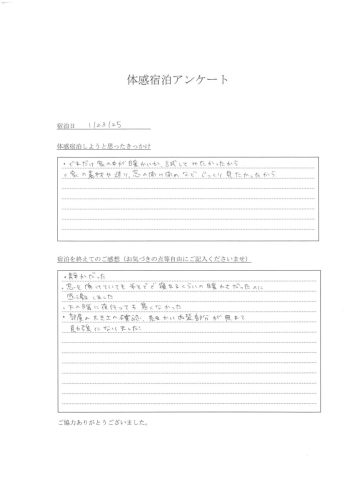 体感宿泊アンケート
宿泊日 1/23/25
体感宿泊しようと思ったきっかけ
・どれだけ家の中が暖かいか、試してみたかったから
・家の素材や造り、窓の向の高めなどじっくり見たかったから
宿泊を終えてのご感想（お気づきの点等自由にご記入くださいませ）
・静かだった
・窓を開けていても半そでで寝れるくらいの暖かさだったのに
感激しました
・木の階段を夜行っても寒くなかった
・部屋の大きさの確認、細かい内装部分が見れて
勉強になりました！
ご協力ありがとうございました。